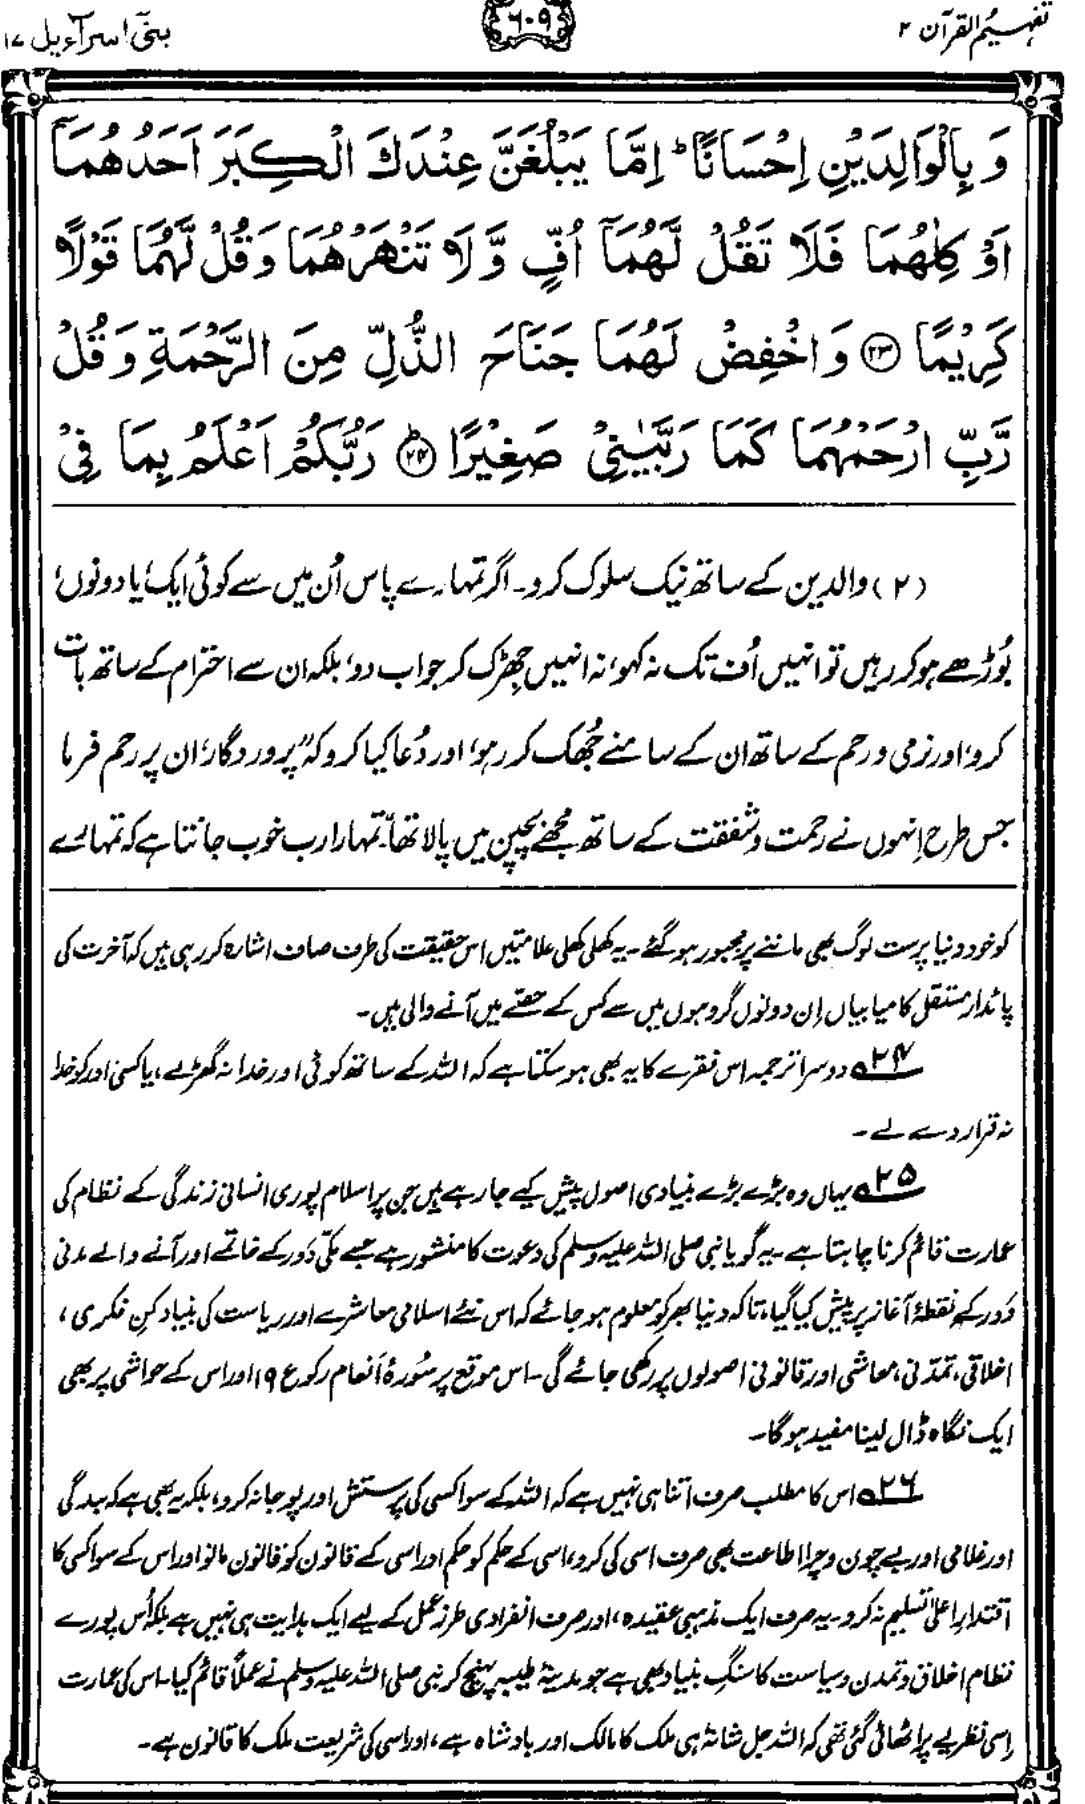 تفہیم القرآن ۲
۶۰۹
بنیٓ اسرآءیل ۱۷
وَ بِالْوَالِدَيْنِ اِحْسَانًا ؕ اِمَّا يَبْلُغَنَّ عِنْدَكَ الْكِبَرَ اَحَدُهُمَاۤ
اَوْ كِلٰهُمَا فَلَا تَقُلْ لَّهُمَاۤ اُفٍّ وَّ لَا تَنْهَرْهُمَا وَ قُلْ لَّهُمَا قَوْلًا
كَرِيْمًا ﴿۲۳﴾ وَ اخْفِضْ لَهُمَا جَنَاحَ الذُّلِّ مِنَ الرَّحْمَةِ وَ قُلْ
رَّبِّ ارْحَمْهُمَا كَمَا رَبَّيٰنِيْ صَغِيْرًا ﴿۲۴﴾ؕ رَبُّكُمْ اَعْلَمُ بِمَا فِيْ
(۲) والدین کے ساتھ نیک سلوک کرو۔ اگر تمہارے پاس اُن میں سے کوئی ایک، یا دونوں،
بُوڑھے ہو کر رہیں تو انہیں اُف تک نہ کہو، نہ انہیں جِھڑک کر جواب دو، بلکہ ان سے احترام کے ساتھ بات
کرو، اور نرمی و رحم کے ساتھ ان کے سامنے جُھک کر رہو، اور دُعا کیا کرو کہ ”پروردگار، ان پر رحم فرما
جس طرح اِنہوں نے رحمت و شفقت کے ساتھ مجھے بچپن میں پالا تھا“۔ تمہارا رب خوب جانتا ہے کہ تمہارے
کو خود دنیا پرست لوگ بھی ماننے پر مجبور ہو گئے۔ یہ کھلی کھلی علامتیں اس حقیقت کی طرف صاف اشارہ کر رہی ہیں کہ آخرت کی
پائدار مستقل کامیابیاں اِن دونوں گروہوں میں سے کس کے حصّے میں آنے والی ہیں۔
۲۴ دوسرا ترجمہ اس فقرے کا یہ بھی ہو سکتا ہے کہ اللہ کے ساتھ کوئی اور خدا نہ گھڑ لے، یا کسی اور کو خدا
نہ قرار دے لے۔
۲۵ یہاں وہ بڑے بڑے بنیادی اصول پیش کیے جا رہے ہیں جن پر اسلام پوری انسانی زندگی کے نظام کی
عمارت قائم کرنا چاہتا ہے۔ یہ گویا نبی صلی اللہ علیہ وسلم کی دعوت کا منشور ہے جسے مکّی دَور کے خاتمے اور آنے والے مدنی
دَور کے نقطۂ آغاز پر پیش کیا گیا، تاکہ دنیا بھر کو معلوم ہو جائے کہ اس نئے اسلامی معاشرے اور ریاست کی بنیاد کن فکری،
اخلاقی، تمدّنی، معاشی اور قانونی اصولوں پر رکھی جائے گی۔ اس موقع پر سُورۂ اَنعام رکوع ۱۹ اور اس کے حواشی پر بھی
ایک نگاہ ڈال لینا مفید ہوگا۔
۲۶ اس کا مطلب صرف اتنا ہی نہیں ہے کہ اللہ کے سوا کسی کی پرستش اور پوجا نہ کرو، بلکہ یہ بھی ہے کہ بندگی
اور غلامی اور بے چون و چرا اطاعت بھی صرف اسی کی کرو، اسی کے حکم کو حکم اور اسی کے قانون کو قانون مانو اور اس کے سوا کسی کا
اقتدارِ اعلیٰ تسلیم نہ کرو۔ یہ صرف ایک مذہبی عقیدہ، اور صرف انفرادی طرز عمل کے لیے ایک ہدایت ہی نہیں ہے بلکہ اُس پورے
نظام اخلاق و تمدن و سیاست کا سنگِ بنیاد بھی ہے جو مدینۂ طیبہ پہنچ کر نبی صلی اللہ علیہ وسلم نے عملاً قائم کیا۔ اس کی عمارت
اِسی نظریے پر اٹھائی گئی تھی کہ اللہ جل شانہٗ ہی ملک کا مالک اور بادشاہ ہے، اور اسی کی شریعت ملک کا قانون ہے۔